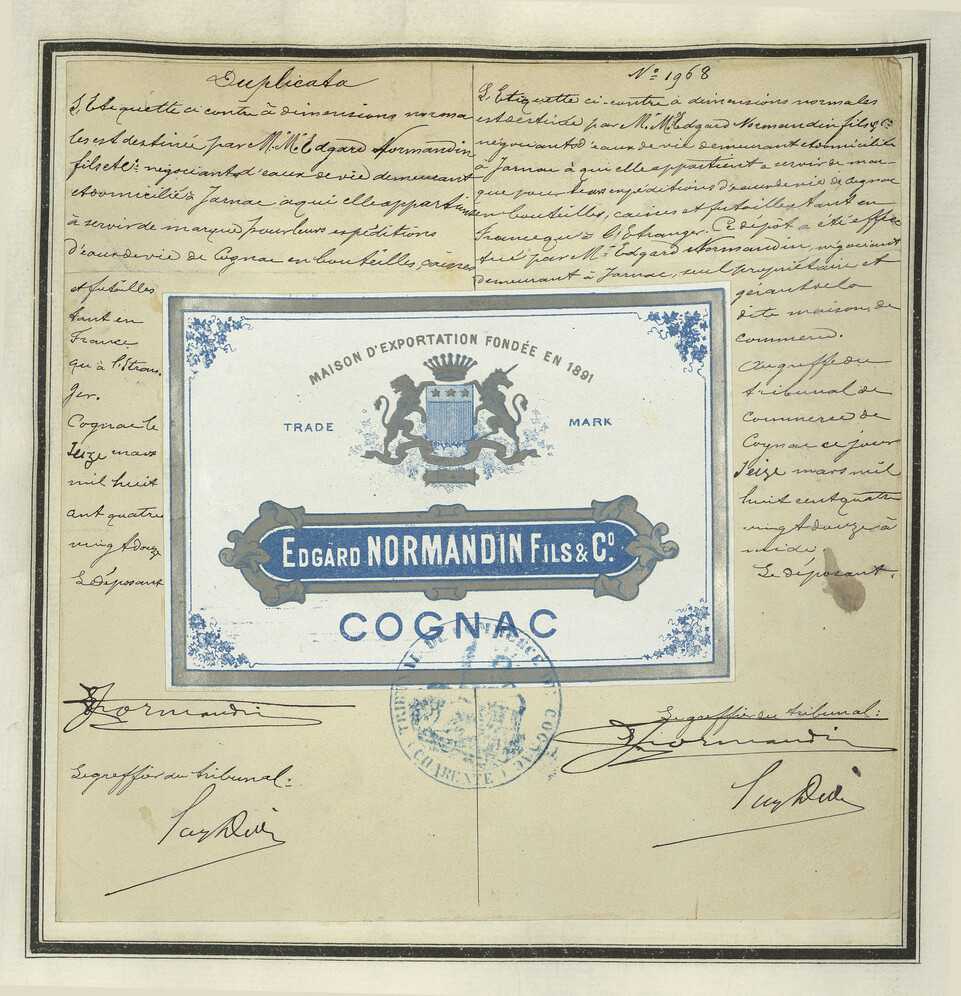 Duplicata
L'Etiquette ci contre à dimensions norma
les est destinée par M.M. Edgard Normandin
fils & Cie négociants d'eaux de vie demeurant
et domicilié à Jarnac à qui elle appartient
à servir de marque pour leurs expéditions
d'eaux de vie de Cognac en bouteilles, caisses
et futailles
tant en
France
qu'à l'Etran
ger.
Cognac le
Seize mars
mil huit
cent quatre
vingt douze
Le déposant
Normandin
Le greffier du tribunal:
N° 1968
L'Etiquette ci-contre à dimensions normales
est destinée par M.M. Edgard Normandin fils & Cie
négociants d'eaux de vie demeurant et domiciliés
à Jarnac à qui elle appartient à servir de mar
que pour leurs expéditions d'eaux de vie de Cognac
en bouteilles, caisses et futailles tant en
France qu'à l'Etranger. Ce dépôt a été effec
tué par M. Edgard Normandin, négociant
demeurant à Jarnac, seul propriétaire et
gérant de la
dite maison de
commerce.
Au greffe du
tribunal de
Commerce de
Cognac ce jour
Seize mars mil
huit cent quatre
vingt douze à
midi.
Le déposant.
Le greffier du tribunal:
Normandin
MAISON D'EXPORTATION FONDÉE EN 1891
TRADE MARK
EDGARD NORMANDIN FILS & Cº
COGNAC
TRIBUNAL DE COMMERCE DE COGNAC
(CHARENTE)